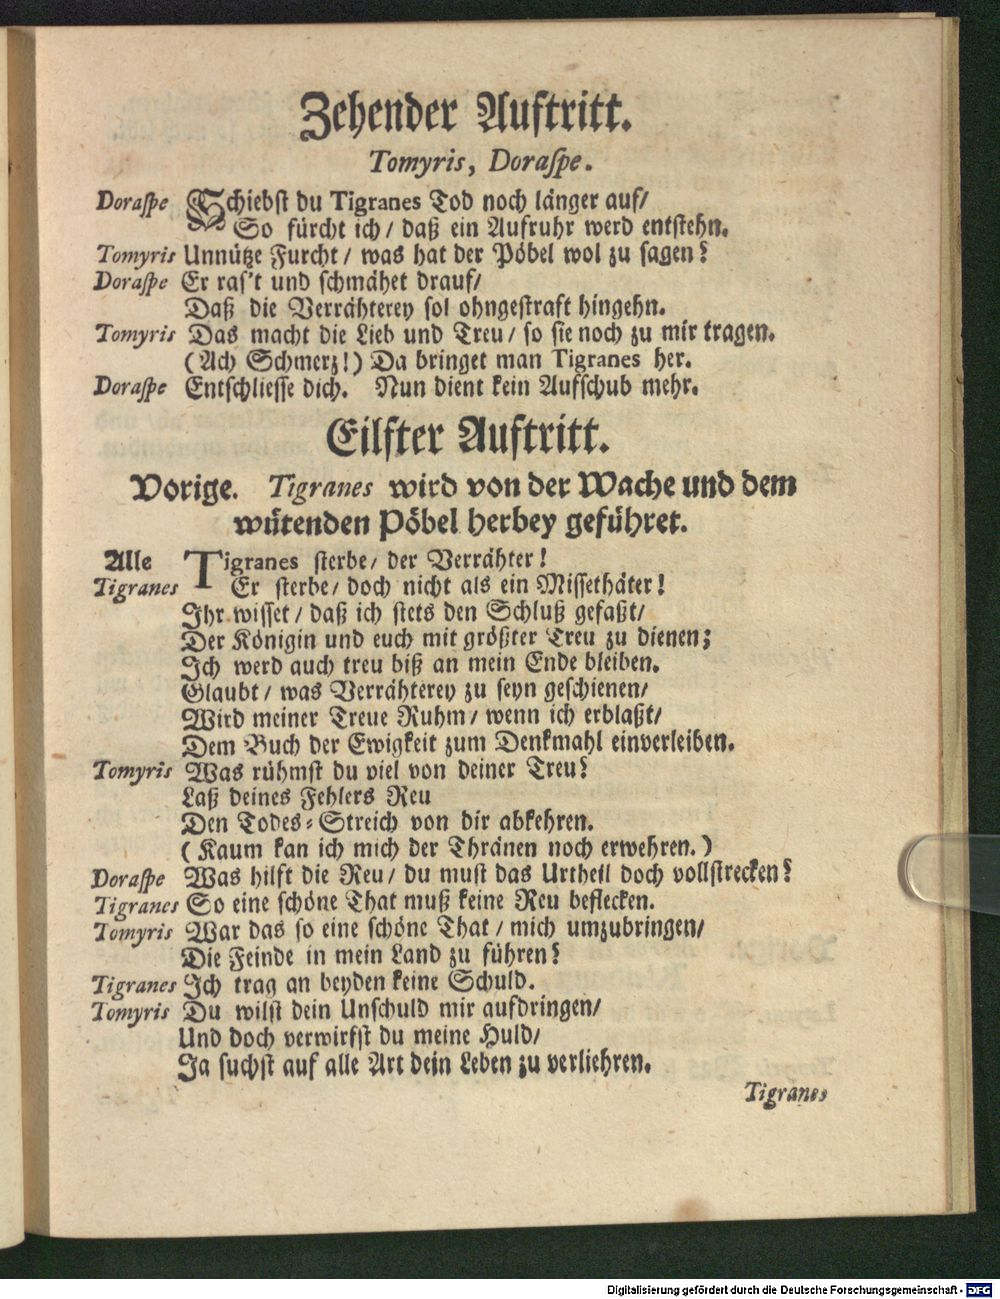 Zehender Auftritt.
Tomyris, Doraspe.
Doraspe Schiebst du Tigranes Tod noch länger auf/
So fürcht ich/ daß ein Aufruhr werd entstehn.
Tomyris Unnütze Furcht/ was hat der Pöbel wol zu sagen?
Doraspe Er ras't und schmähet drauf/
Daß die Verrähterey sol ohngestraft hingehn.
Tomyris Das macht die Lieb und Treu/ so sie noch zu mir tragen.
(Ach Schmerz!) Da bringet man Tigranes her.
Doraspe Entschliesse dich. Nun dient kein Aufschub mehr.
Eilfter Auftritt.
Vorige. Tigranes wird von der Wache und dem
wütenden Pöbel herbey geführet.
Alle Tigranes sterbe/ der Verrähter!
Tigranes Er sterbe/ doch nicht als ein Missethäter!
Ihr wisset/ daß ich stets den Schluß gefaßt/
Der Königin und euch mit größter Treu zu dienen;
Ich werd auch treu biß an mein Ende bleiben.
Glaubt/ was Verrähterey zu seyn geschienen/
Wird meiner Treue Ruhm/ wenn ich erblaßt/
Dem Buch der Ewigkeit zum Denkmahl einverleiben.
Tomyris Was rühmst du viel von deiner Treu?
Laß deines Fehlers Reu
Den Todes-Streich von dir abkehren.
(Kaum kan ich mich der Thränen noch erwehren.)
Doraspe Was hilft die Reu/ du must das Urtheil doch vollstrecken?
Tigranes So eine schöne That muß keine Reu beflecken.
Tomyris War das so eine schöne That/ mich umzubringen/
Die Feinde in mein Land zu führen?
Tigranes Ich trag an beyden keine Schuld.
Tomyris Du wilst dein Unschuld mir aufdringen/
Und doch verwirfst du meine Huld/
Ja suchst auf alle Art dein Leben zu verliehren.
Tigranes
Digitalisierung gefördert durch die Deutsche Forschungsgemeinschaft - DFG